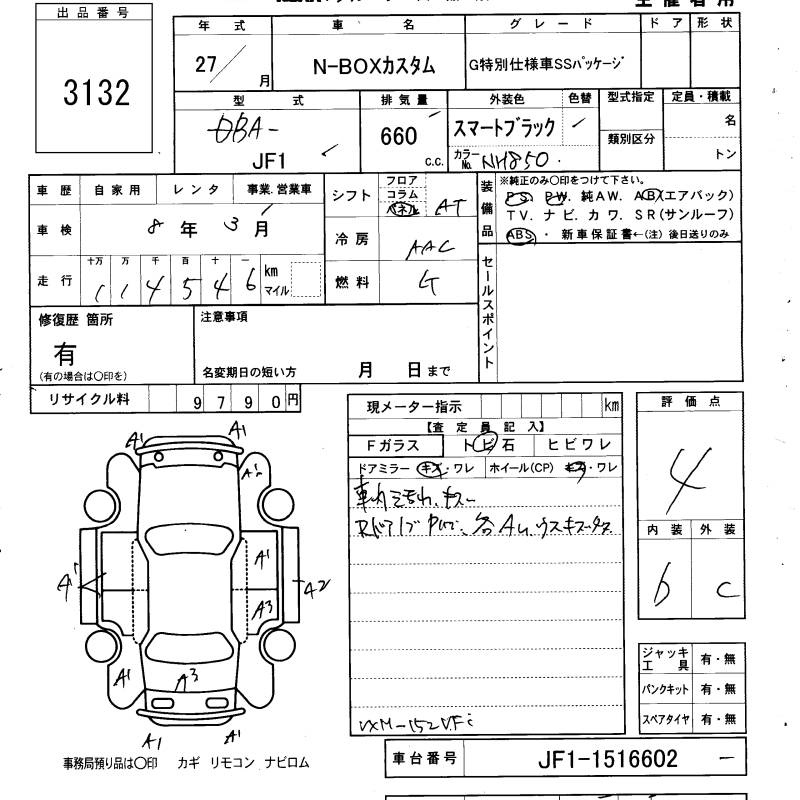 出品番号
3132
年式 車名 グレード ドア 形状
27/月 N-BOXカスタム G特別仕様車SSパッケージ
型式 排気量 外装色 色替 型式指定 定員・積載
DBA-
JF1
660 c.c.
スマートブラック
カラーNo. NH850
類別区分
名
トン
車歴 自家用 レンタ 事業.営業車
車検 8年 3月
走行 十万 万 千 百 十 一
1 1 4 5 4 6 km マイル
シフト フロア コラム パネル AT
冷房 AAC
燃料 G
装備品
※純正のみ○印をつけて下さい。
PS. PW. 純AW. AB(エアバック)
TV. ナビ. カワ. SR(サンルーフ)
ABS ・ 新車保証書←(注)後日送りのみ
セールスポイント
修復歴 箇所
有
(有の場合は○印を)
注意事項
名変期日の短い方 月 日まで
リサイクル料 9790円
現メーター指示 km
【査定員記入】
Fガラス トビ石 ヒビワレ
ドアミラー キズ・ワレ ホイール(CP) キズ・ワレ
VXM-152VFi
評価点
4
内装 外装
b C
A1 A1
A2
A1 A1 A2
A3
A1 A3
A1 A1
ジャッキ工具 有・無
パンクキット 有・無
スペアタイヤ 有・無
事務局預り品は○印 カギ リモコン ナビロム
車台番号 JF1-1516602 －